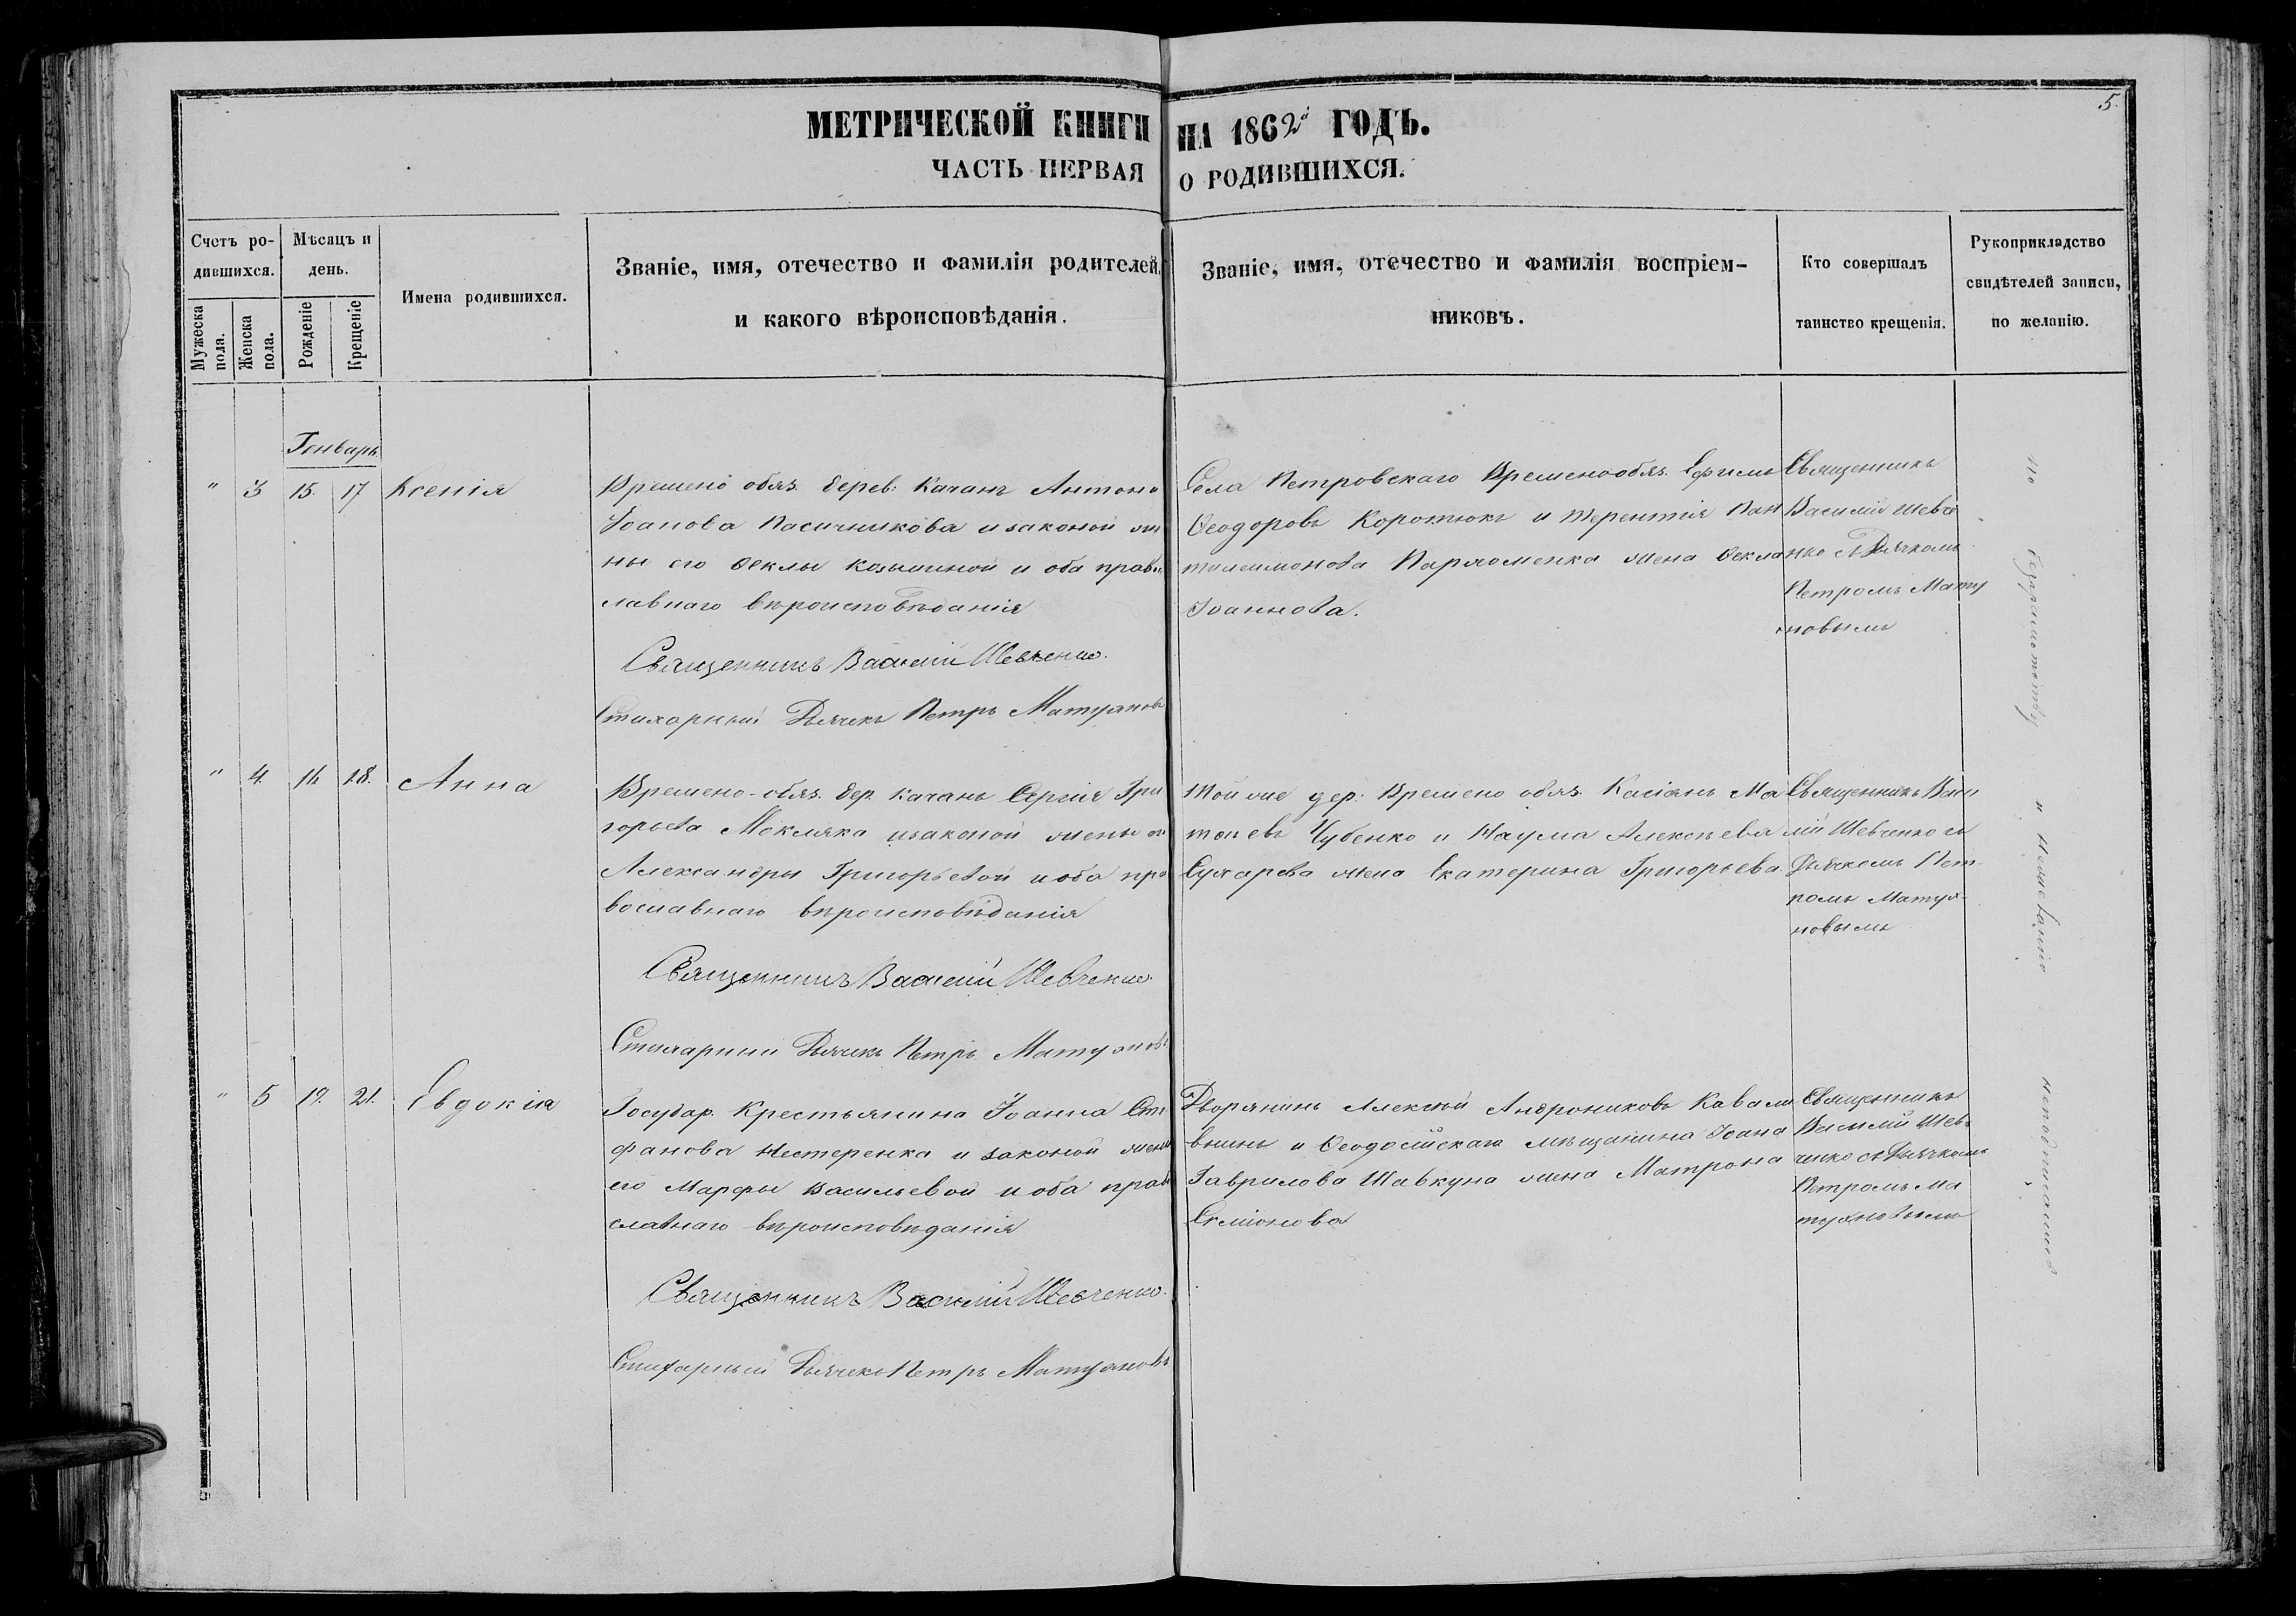 5.
МЕТРИЧЕСКОЙ КНИГИ НА 1862й ГОДЪ.
ЧАСТЬ ПЕРВАЯ О РОДИВШИХСЯ.
Счетъ ро-
дившихся.
Мужеска пола.
Женска пола.
Мѣсяцъ и
день.
Рожденіе
Крещеніе
Имена родившихся.
Званіе, имя, отечество и фамилія родителей,
и какого вѣроисповѣданія.
Званіе, имя, отечество и фамилія воспріем-
никовъ.
Кто совершалъ
таинство крещенія.
Рукоприкладство
свидѣтелей записи,
по желанію.
Генварь
" 3 15. 17 Ксенія
Времено обяз. дерев: Качанъ Антона
Іоанова Пасичникова и законой же
ны его Ѳеклы Козминой и оба право
лавнаго вѣроисповѣданія
Священникъ Василій Шевченко.
Стихарный Дьячекъ Петръ Матухновъ
Села Петровскаго Временообяз. Ефимъ
Ѳеодоровъ Коротюкъ и Терентія Пан
тилеимонова Пархоменка жена Ѳекла
Іоаннова.
Священникъ
Василій Шевче
нко съ Дьячкомъ
Петромъ Мату
хновымъ
" 4. 16. 18. Анна
Времено-обяз. дер. Качанъ Сергія Гри
горьева Мокляка изаконой жены ог
Александры Григорьевой и оба пра
вославнаго вѣроисповѣданія
Священникъ Василій Шевченко.
Стихарный Дьячекъ Петръ Матухновъ.
Той же дер: Времено обяз. Касіянъ Ма
тѳиевъ Чубенко и Наума Алексѣева
Сухарева жена Екатерина Григорьева.
Священникъ Васи
лій Шевченко съ
Дьячкомъ Пет-
ромъ Матух-
новымъ
" 5 19. 21. Евдокія
Государ. Крестьянина Іоанна Сте
фанова Нестеренка и законой жены
его Марфы Васильевой и оба право
славнаго вѣроисповѣданія
Священникъ Василій Шевченко.
Стихарный Дьячекъ Петръ Матухновъ
Дворянинъ Алексѣй Андрониковъ Кавали
Ѳеодосійскаго мѣщанина Іоана
Гаврилова Шавкуна жена Матрона
Семіонова
Священникъ
Василій Шев
ченко съ Дьячкомъ
Петромъ Ма
тухновымъ
по безграмотству и нежеланію неподписались